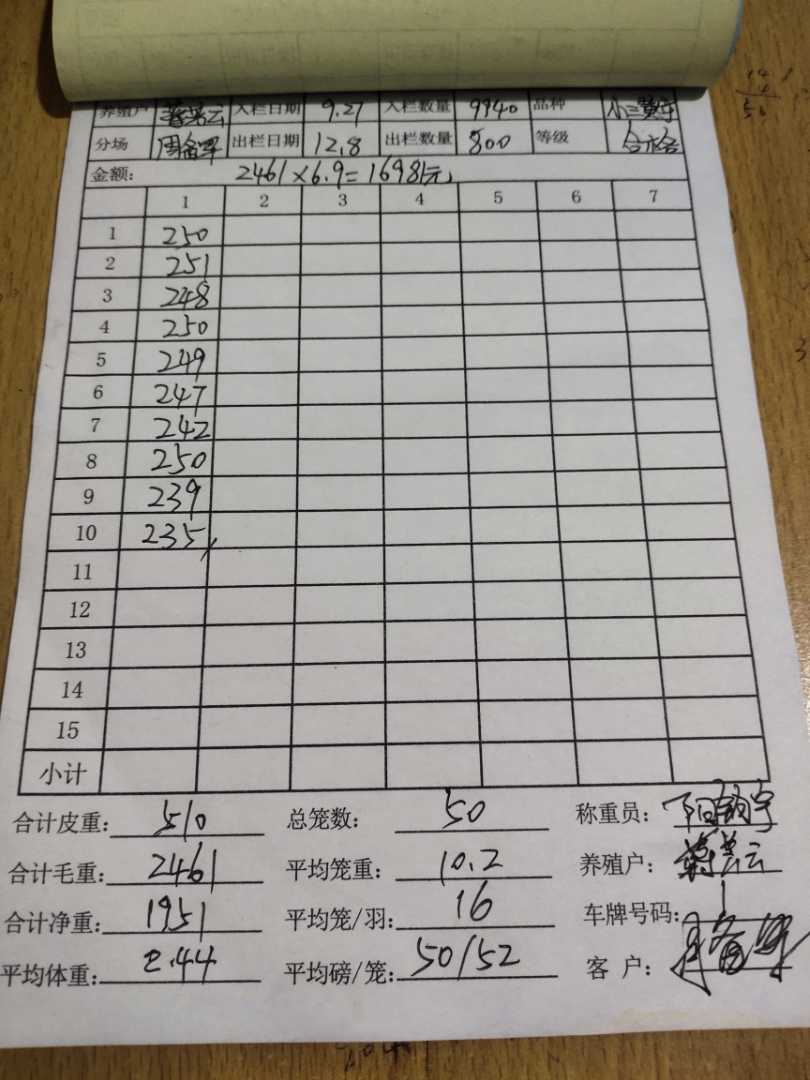 养殖户 入栏日期 9.27 入栏数量 9940 品种
分场 出栏日期 12.8 出栏数量 800 等级 合格
金额: 2461×6.9=16981元
1 2 3 4 5 6 7
1 250
2 251
3 248
4 250
5 249
6 247
7 242
8 250
9 239
10 235
11
12
13
14
15
小计
合计皮重: 510 总笼数: 50 称重员:
合计毛重: 2461 平均笼重: 10.2 养殖户:
合计净重: 1951 平均笼/羽: 16 车牌号码:
平均体重: 2.44 平均磅/笼: 50/52 客 户: